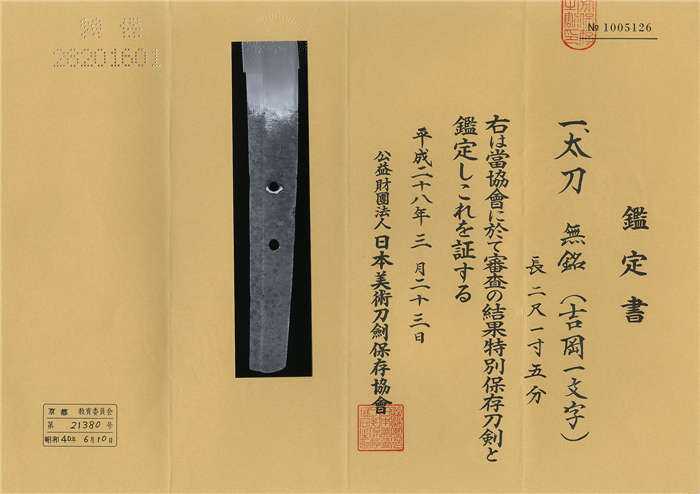 鑑定書
一、太刀 無銘(吉岡一文字)
長二尺一寸五分
右は當協會に於て審査の結果特別保存刀剣と
鑑定しこれを証する
平成二十八年三月二十三日
公益財團法人 日本美術刀劍保存協會
№ 1005126
26201601
京都 教育委員会
第 21380 号
昭和40年 6月10日